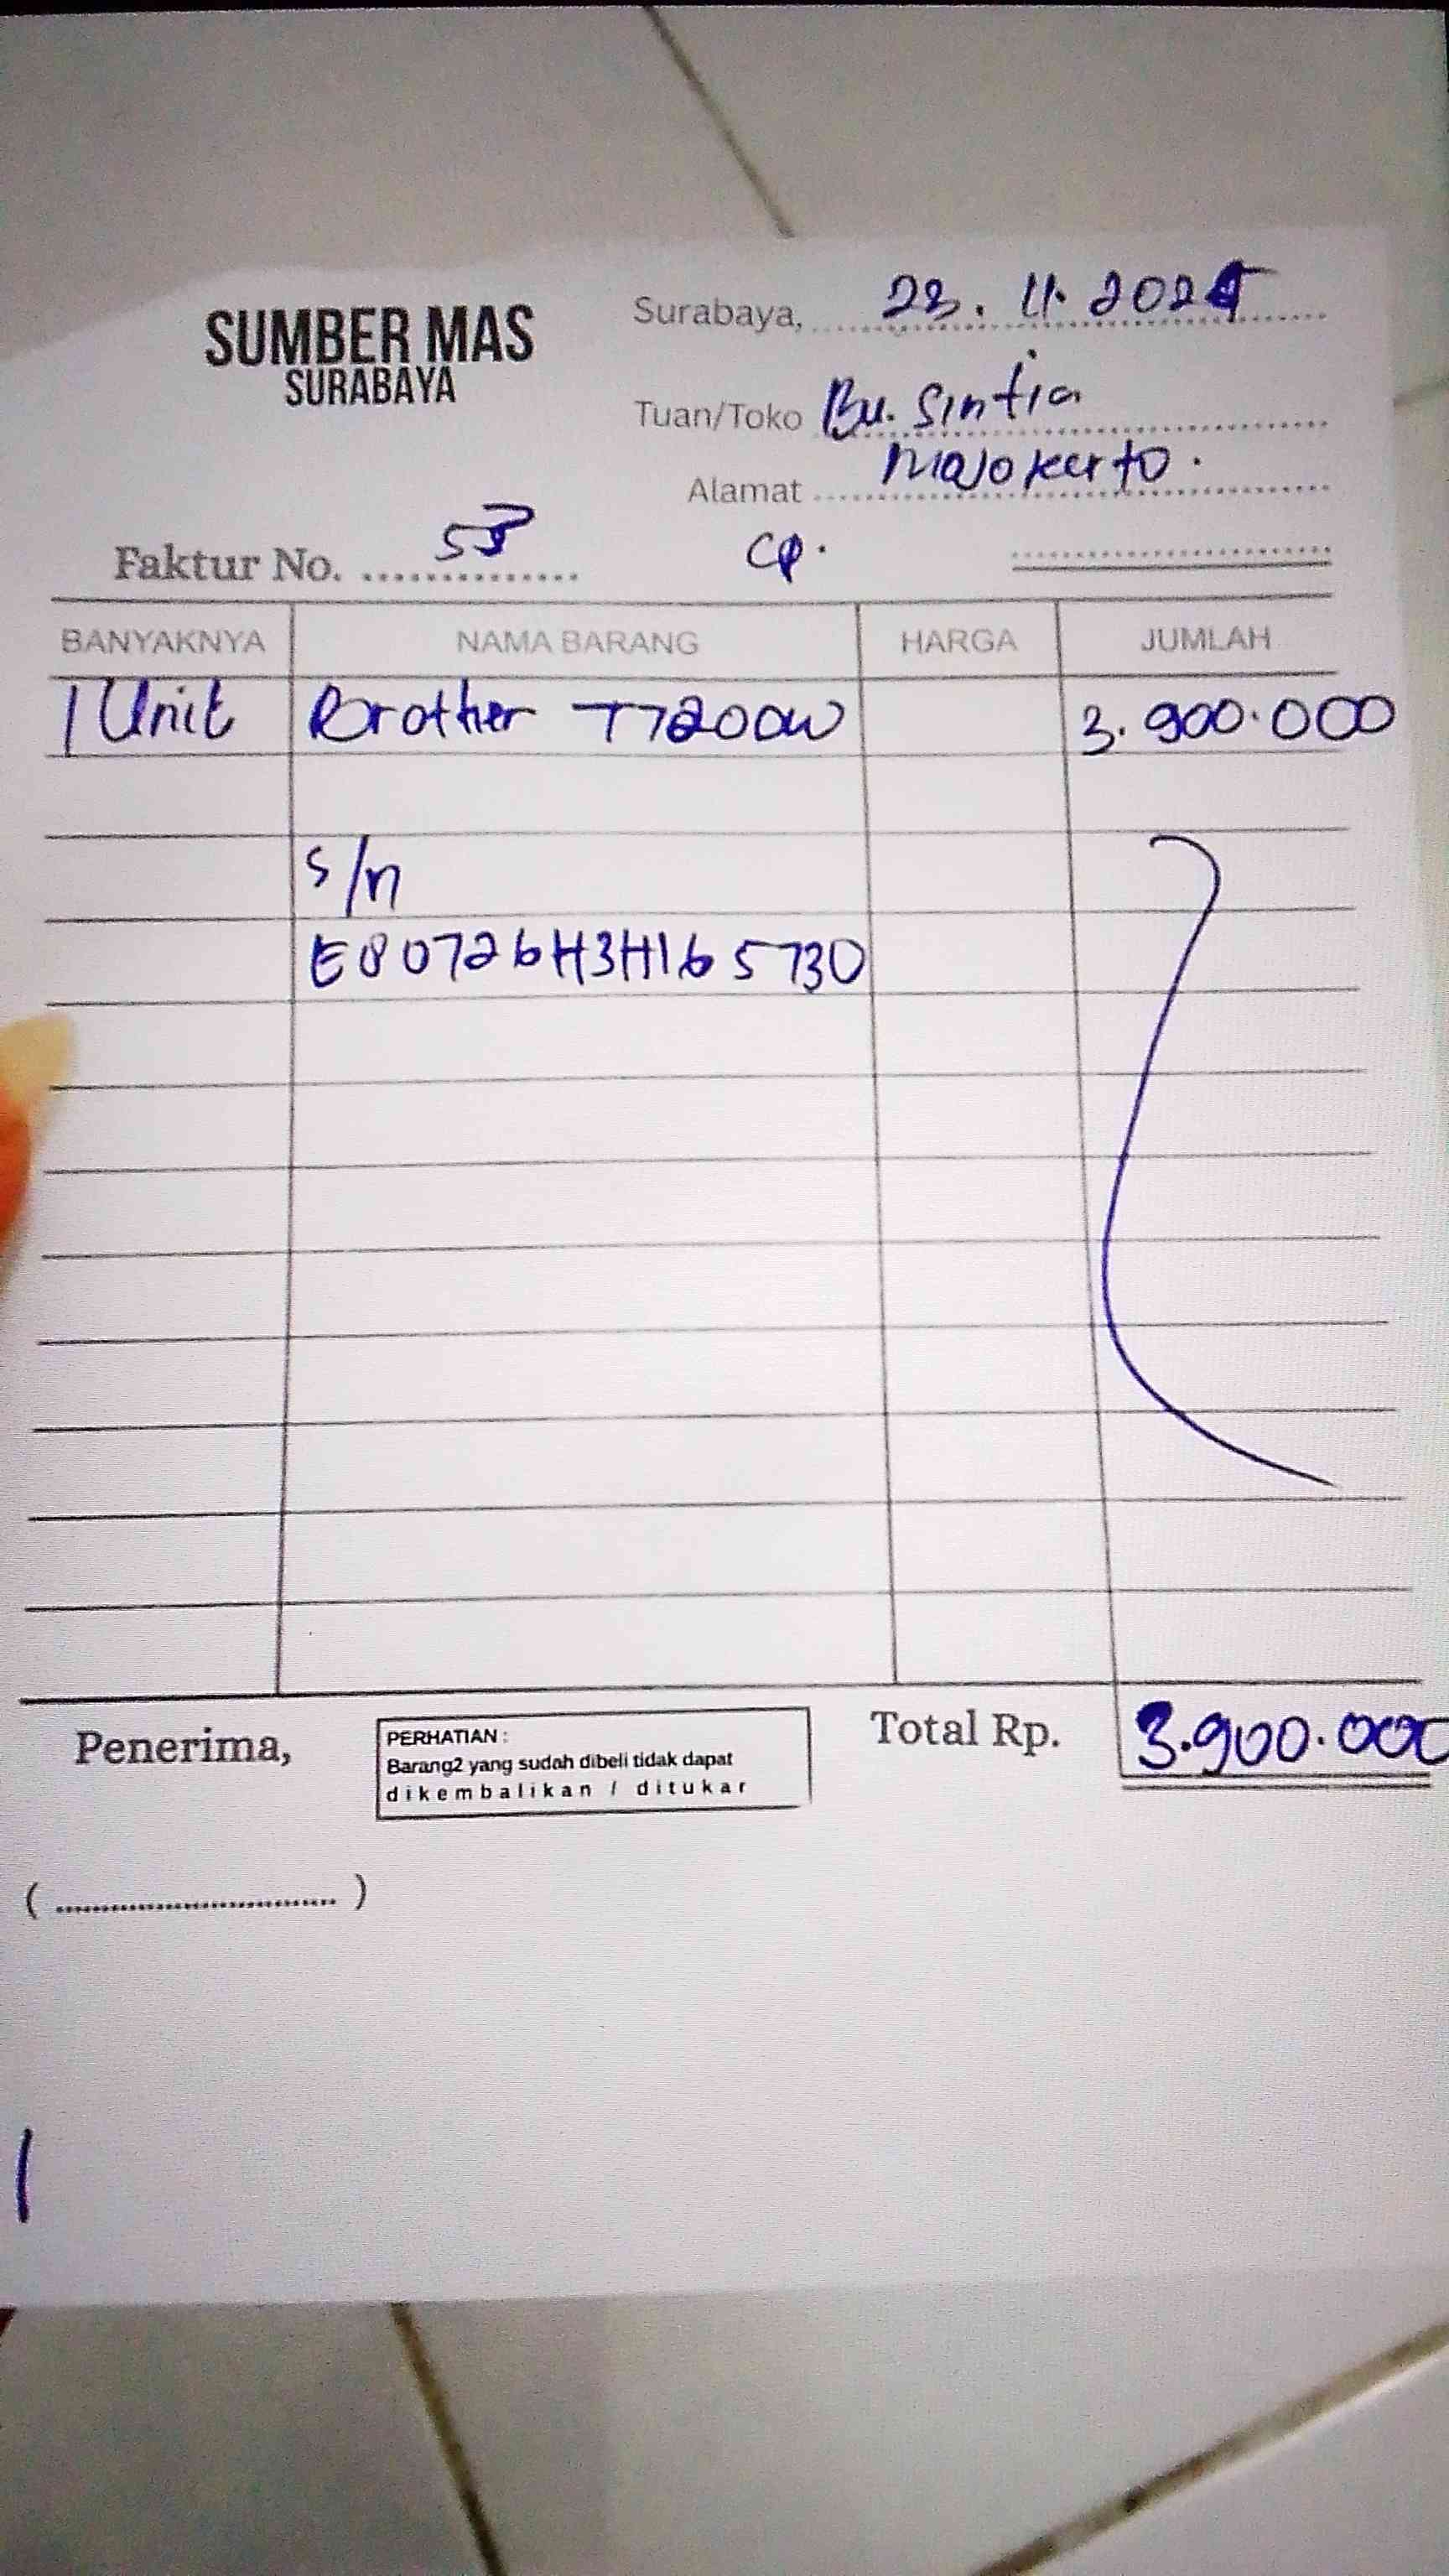 SUMBER MAS
SURABAYA
Surabaya, 23. 11. 2024
Tuan/Toko Bu. Sintia
Alamat Mojokerto.
Faktur No.
BANYAKNYA NAMA BARANG HARGA JUMLAH
1 Unit Brother T7200W 3.900.000
s/n
E80726H3H165730
Penerima,
PERHATIAN :
Barang2 yang sudah dibeli tidak dapat
dikembalikan / ditukar
Total Rp. 3.900.000